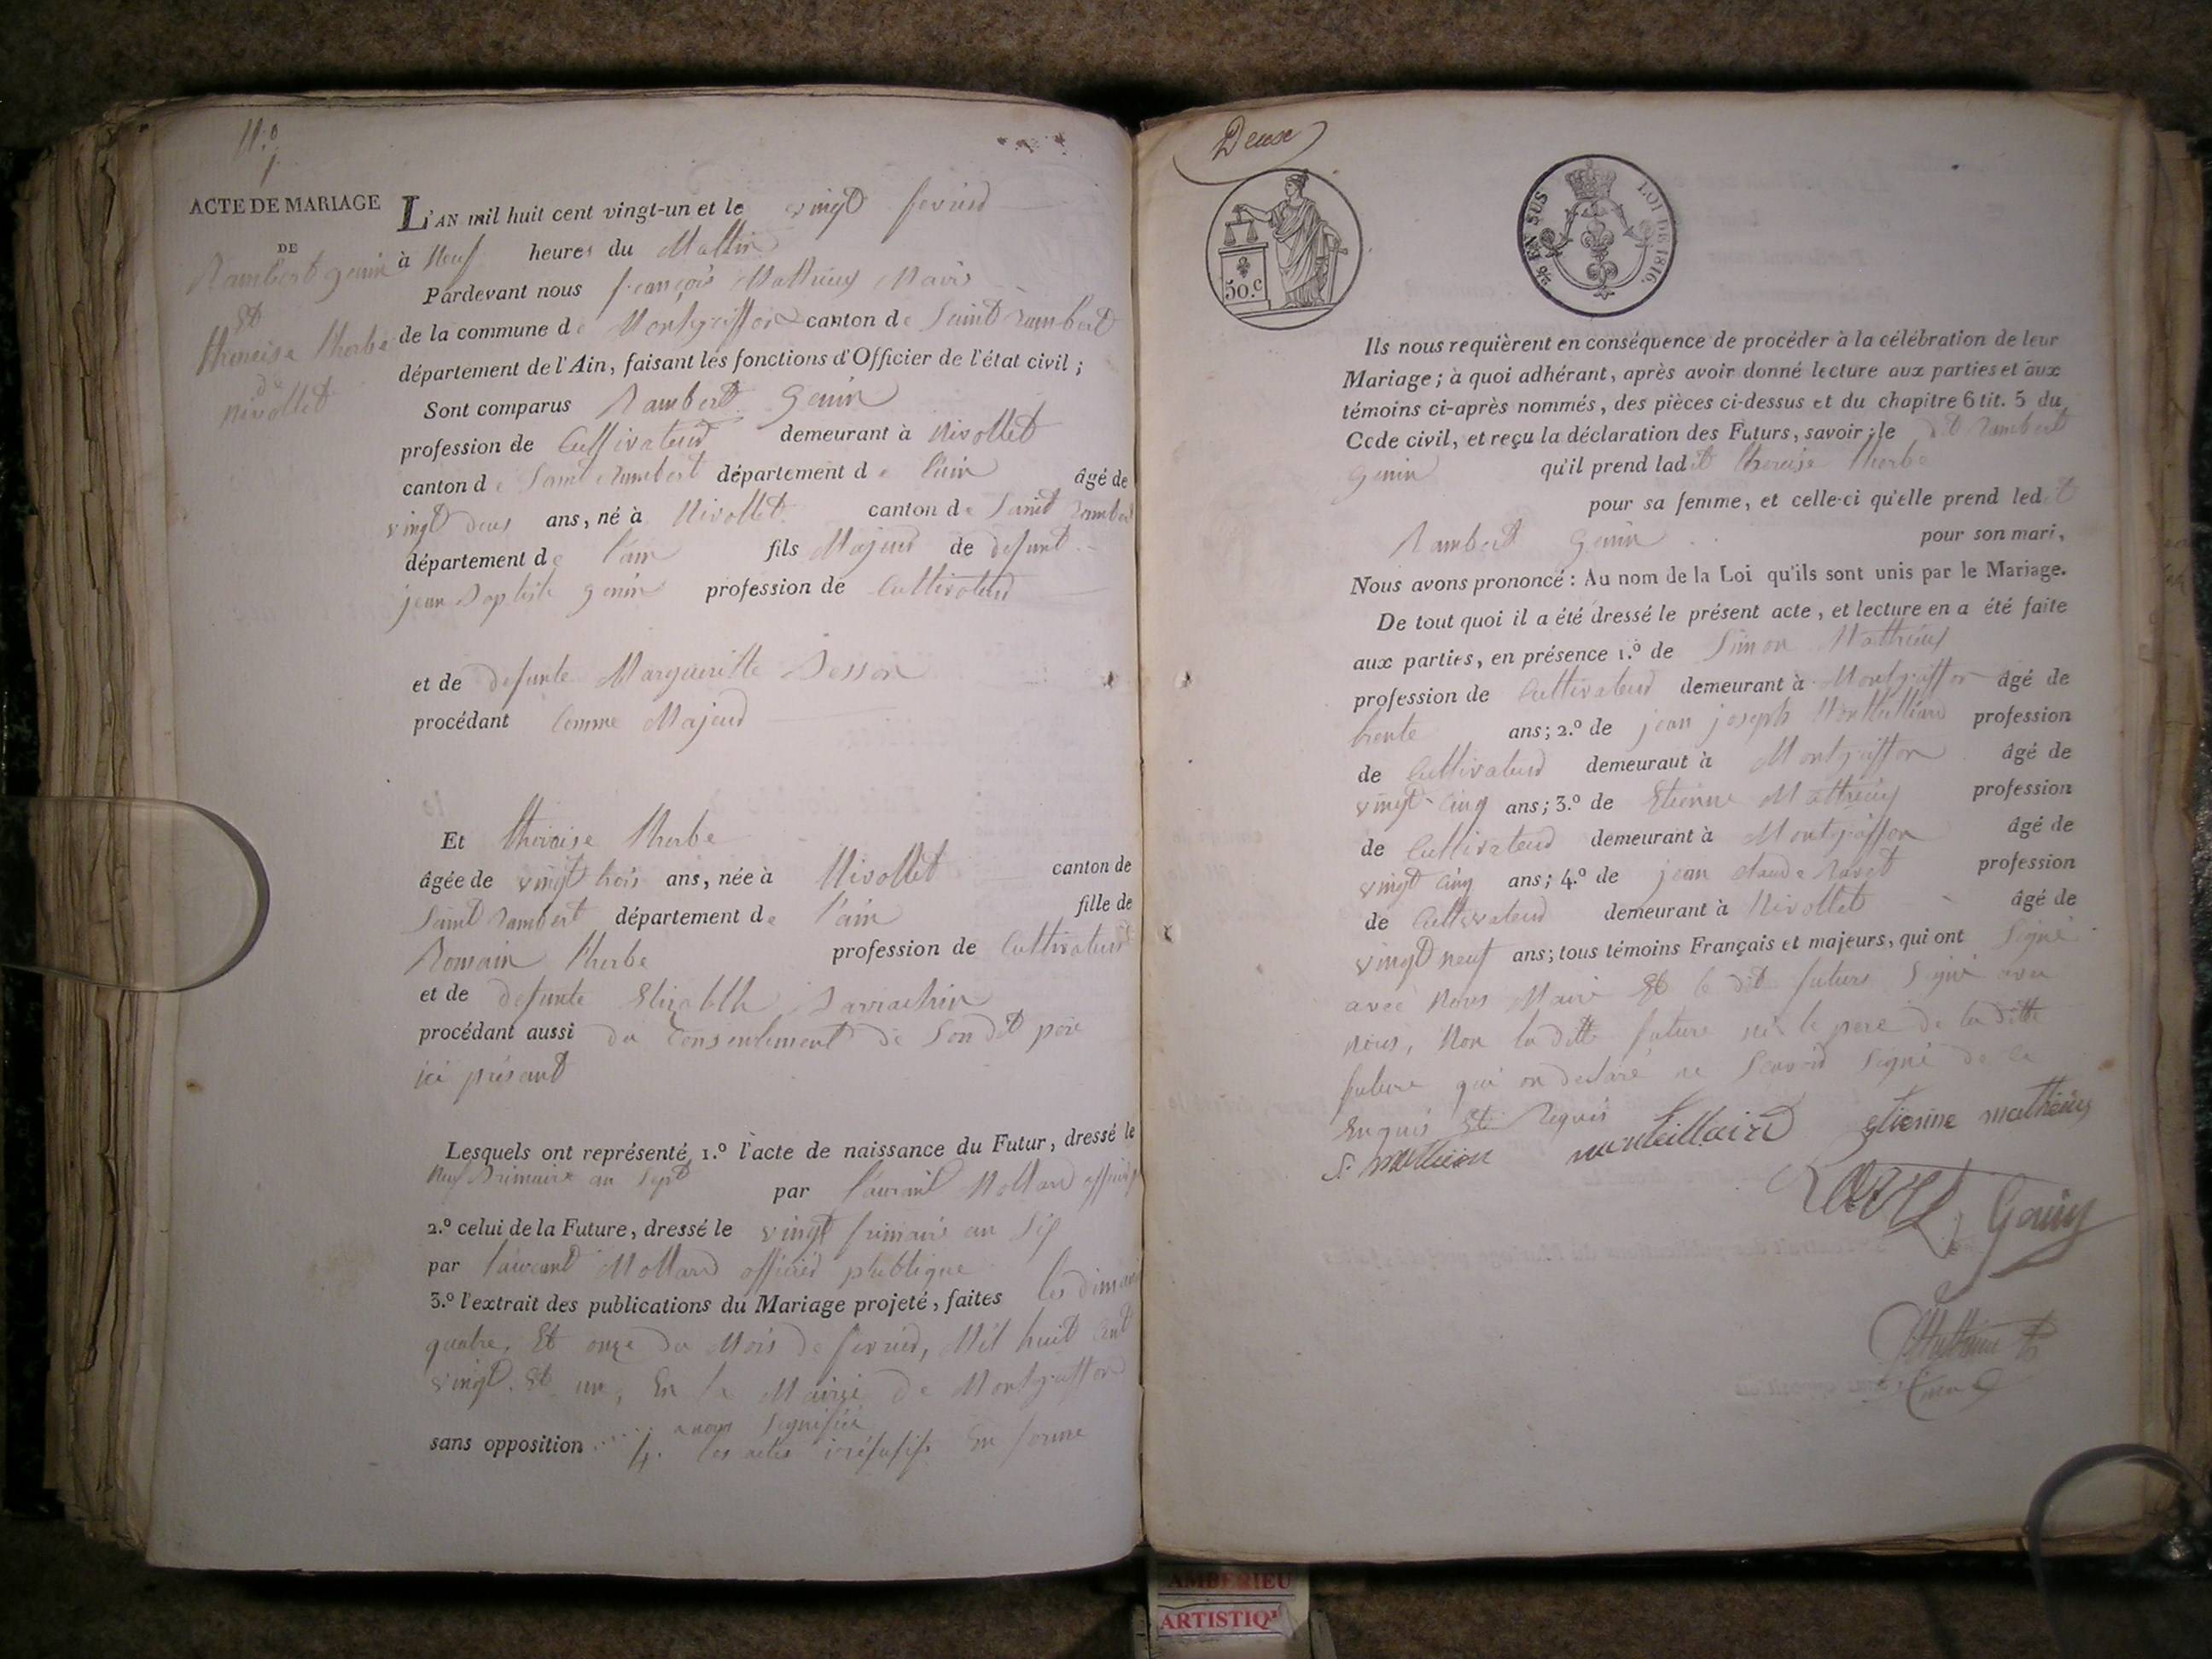 N.o
1
ACTE DE MARIAGE
DE
Rambert genin
Et
thereise therbe
de
nivollet
L'AN mil huit cent vingt-un et le vingt fevrier
à Neuf heures du Mattin
Pardevant nous françois Mathieux Maire
de la commune de Montgriffon canton de Saint rambert
département de l'Ain, faisant les fonctions d'Officier de l'état civil ;
Sont comparus Rambert Genin
profession de Cultivateur demeurant à Nivollet
canton de Saint rambert département de l'ain âgé de
vingt deux ans, né à Nivollet canton de Saint rambert
département de l'ain fils Majeur de defunt
jean Baptiste genin profession de Cultivateur
et de defunte Margueritte Besson
procédant Comme Majeur
Et thereise therbe
âgée de vingt trois ans, née à Nivollet canton de
Saint rambert département de l'ain fille de
Romain therbe profession de Cultivateur
et de defunte Elizabeth
procédant aussi du Consentement de Son dit père
ici présent
Lesquels ont représenté 1.º l'acte de naissance du Futur, dressé le
Neuf Brimaire an Sept par Laurant Mollard
2.º celui de la Future, dressé le vingt frimaire an
par Laurant Mollard officier publique
3.º l'extrait des publications du Mariage projeté, faites les
quatre, Et onze du Mois de fevrier, Mil huit Cent
vingt Et un, En la Mairie de Montgriffon
sans opposition a nous Signifiée
4. les actes En forme
Deux
50.C
EN SUS LOI DE 1816.
Ils nous requièrent en conséquence de procéder à la célébration de leur
Mariage ; à quoi adhérant, après avoir donné lecture aux parties et aux
témoins ci-après nommés, des pièces ci-dessus et du chapitre 6 tit. 5 du
Code civil, et reçu la déclaration des Futurs, savoir ; le dit Rambert
Genin qu'il prend ladit thereise therbe
pour sa femme, et celle-ci qu'elle prend ledit
Rambert Genin pour son mari,
Nous avons prononcé : Au nom de la Loi qu'ils sont unis par le Mariage.
De tout quoi il a été dressé le présent acte, et lecture en a été faite
aux parties, en présence 1.º de Simon Mathieux
profession de Cultivateur demeurant à Montgriffon âgé de
trente ans ; 2.º de jean joseph profession
de Cultivateur demeuraut à Montgriffon âgé de
vingt Cinq ans ; 3.º de Etienne Mathieux profession
de Cultivateur demeurant à Montgriffon âgé de
vingt Cinq ans ; 4.º de jean claude Ravet profession
de Cultivateur demeurant à Nivollet âgé de
vingt neuf ans ; tous témoins Français et majeurs, qui ont Signé
avec Nous Maire Et le dit futurs Signé avec
Nous, Non la ditte future ni le pere de la ditte
future qui on declaré ne Scavoir Signé de ce
Enquis Et Requis
S. mathieu monteillaird etienne mathieux
Ravet Genin
Mathieux
AMBERIEU
ARTISTIQ